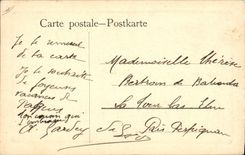 Carte postale—Postkarte
Je te remercie
de ta carte
Je te souhaite
de joyeuses
vacances de
Pâques
Ton cousin qui
Mademoiselle Thérèse
Bertran de
La Tour bas Elne
Près Perpignan